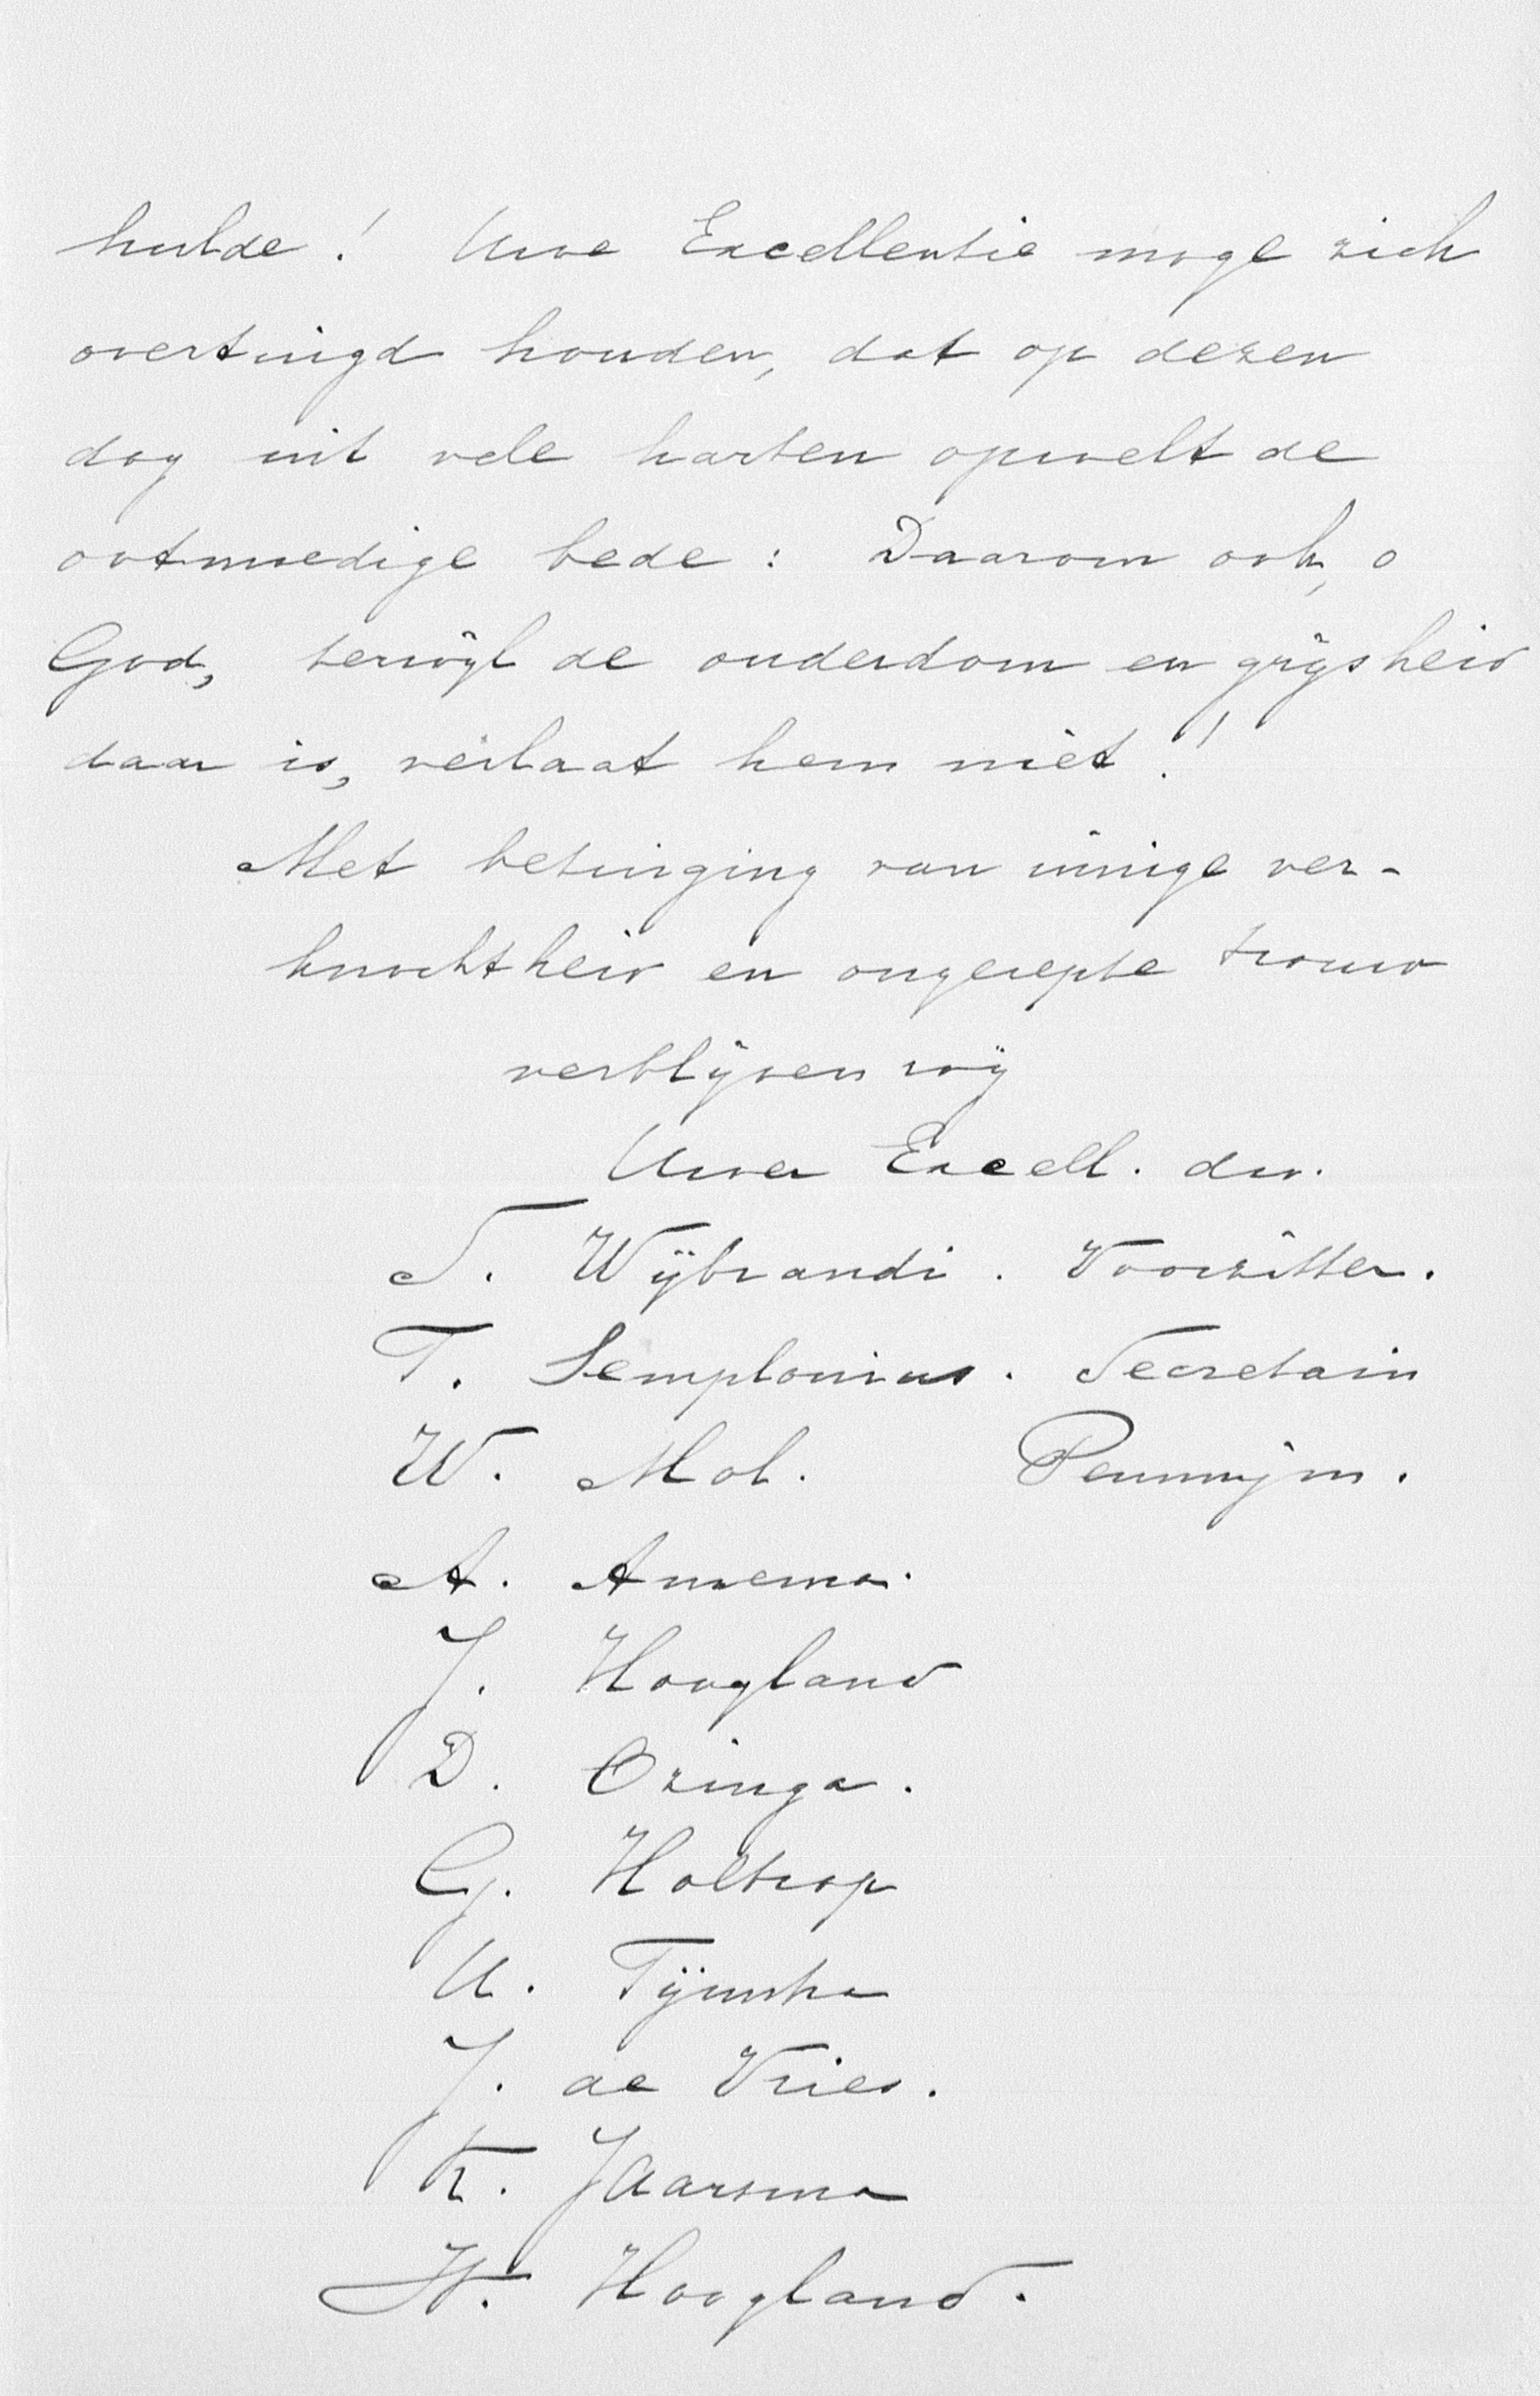 hulde! Uwe Excellentie moge zich
overtuigd houden, dat op dezen
dag uit vele harten opwelt de
ootmoedige bede: Daarom ook, o
God, terwijl de ouderdom en grijsheid
daar is, verlaat hem niet!
Met betuiging van innige ver-
knochtheid en ongerepte trouw
verblijven wij
Uwer Excell. dw.
S. Wijbrandi. Voorzitter.
T. Semplonius. Secretaris
W. Mol. Pennijm.
A. Annema.
J. Hoogland
D. Ozinga.
G. Holtrop
U. Tijmstra
J. de Vries.
K. Jaarsma
H. Hoogland.